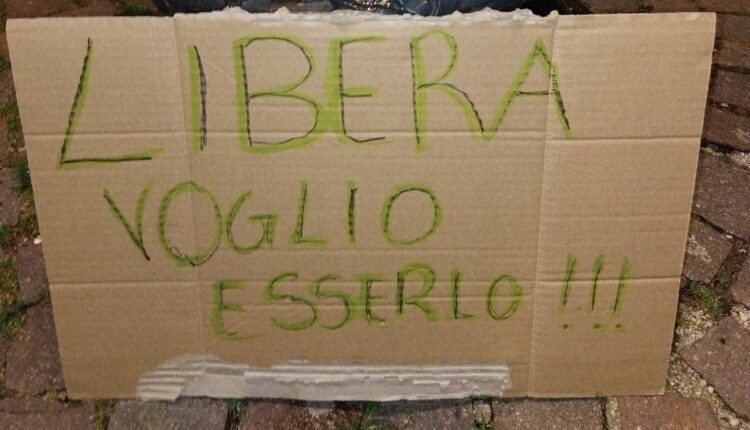 LIBERA
VOGLIO
ESSERLO !!!